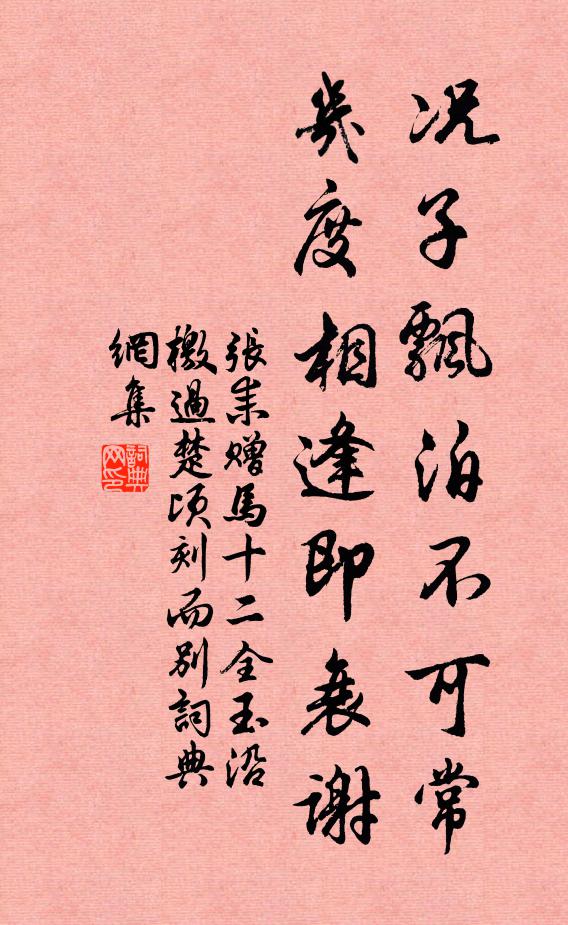 况子飄泊不可常
幾度相逢即衰謝
張耒贈馬十二全玉沿
檄過楚頃刻而別詞典
網集
詞典网印